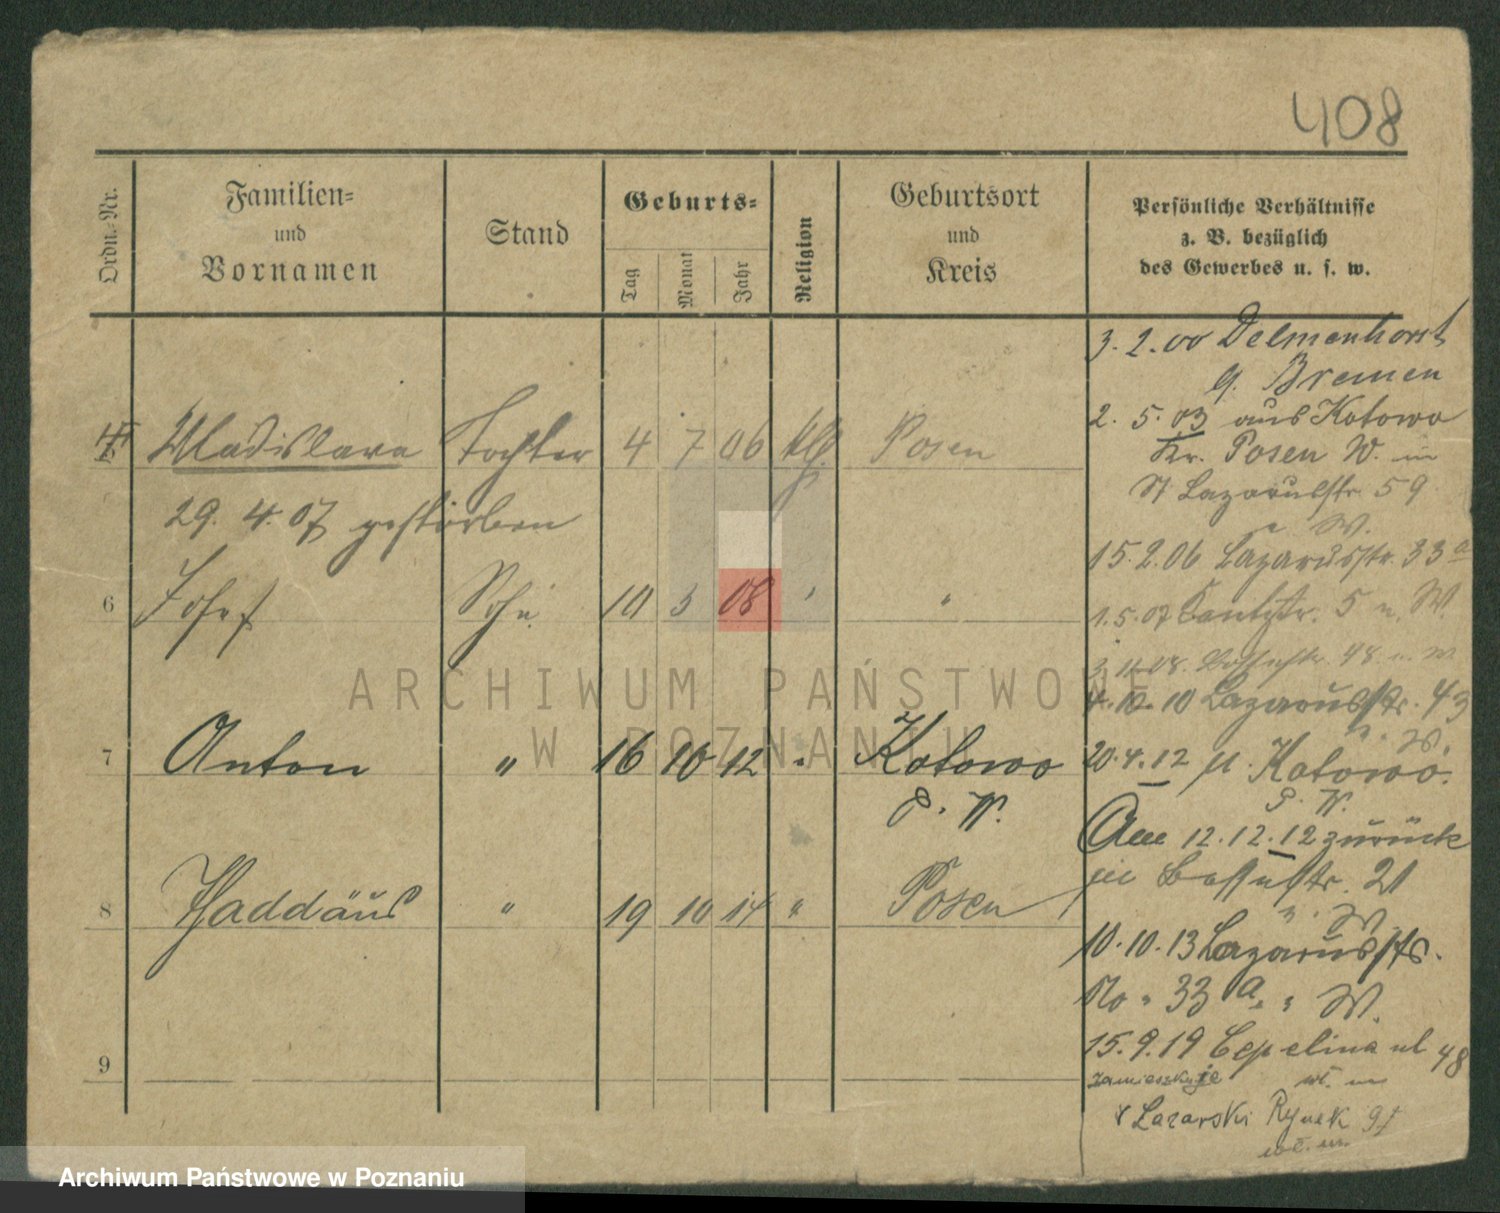 408
Ordn.-Nr.
Familien-
und
Vornamen
Stand
Geburts-
Tag
Monat
Jahr
Religion
Geburtsort
und
Kreis
Persönliche Verhältnisse
z. B. bezüglich
des Gewerbes u. s. w.
Wladislava Tochter 4 7 06 Posen
29. 4. 07 gestorben
6 Josef Sohn 10 3 08 "
7 Anton " 16 10 12 " Kotowo
P. W.
8 Thaddäus " 19 10 14 " Posen
9
3. 2. 00 Delmenhorst
Bremen
2. 5. 03 aus Kotowo
Kr. Posen W. in
St Lazarusstr 59
W.
15. 2. 06 Lazarusstr. 33 a
1. 5. 07 5 W.
48
4. 10. 10 Lazarusstr. 43
W.
20. 4. 12 Kotowo.
P. W.
Am 12. 12. 12 zurück
21
W.
10. 10. 13 Lazarusstr.
No 33 a W.
15. 9. 19 ul 48
zamieszkuje
Lazarski Rynek
ARCHIWUM PAŃSTWOWE
W POZNANIU
Archiwum Państwowe w Poznaniu